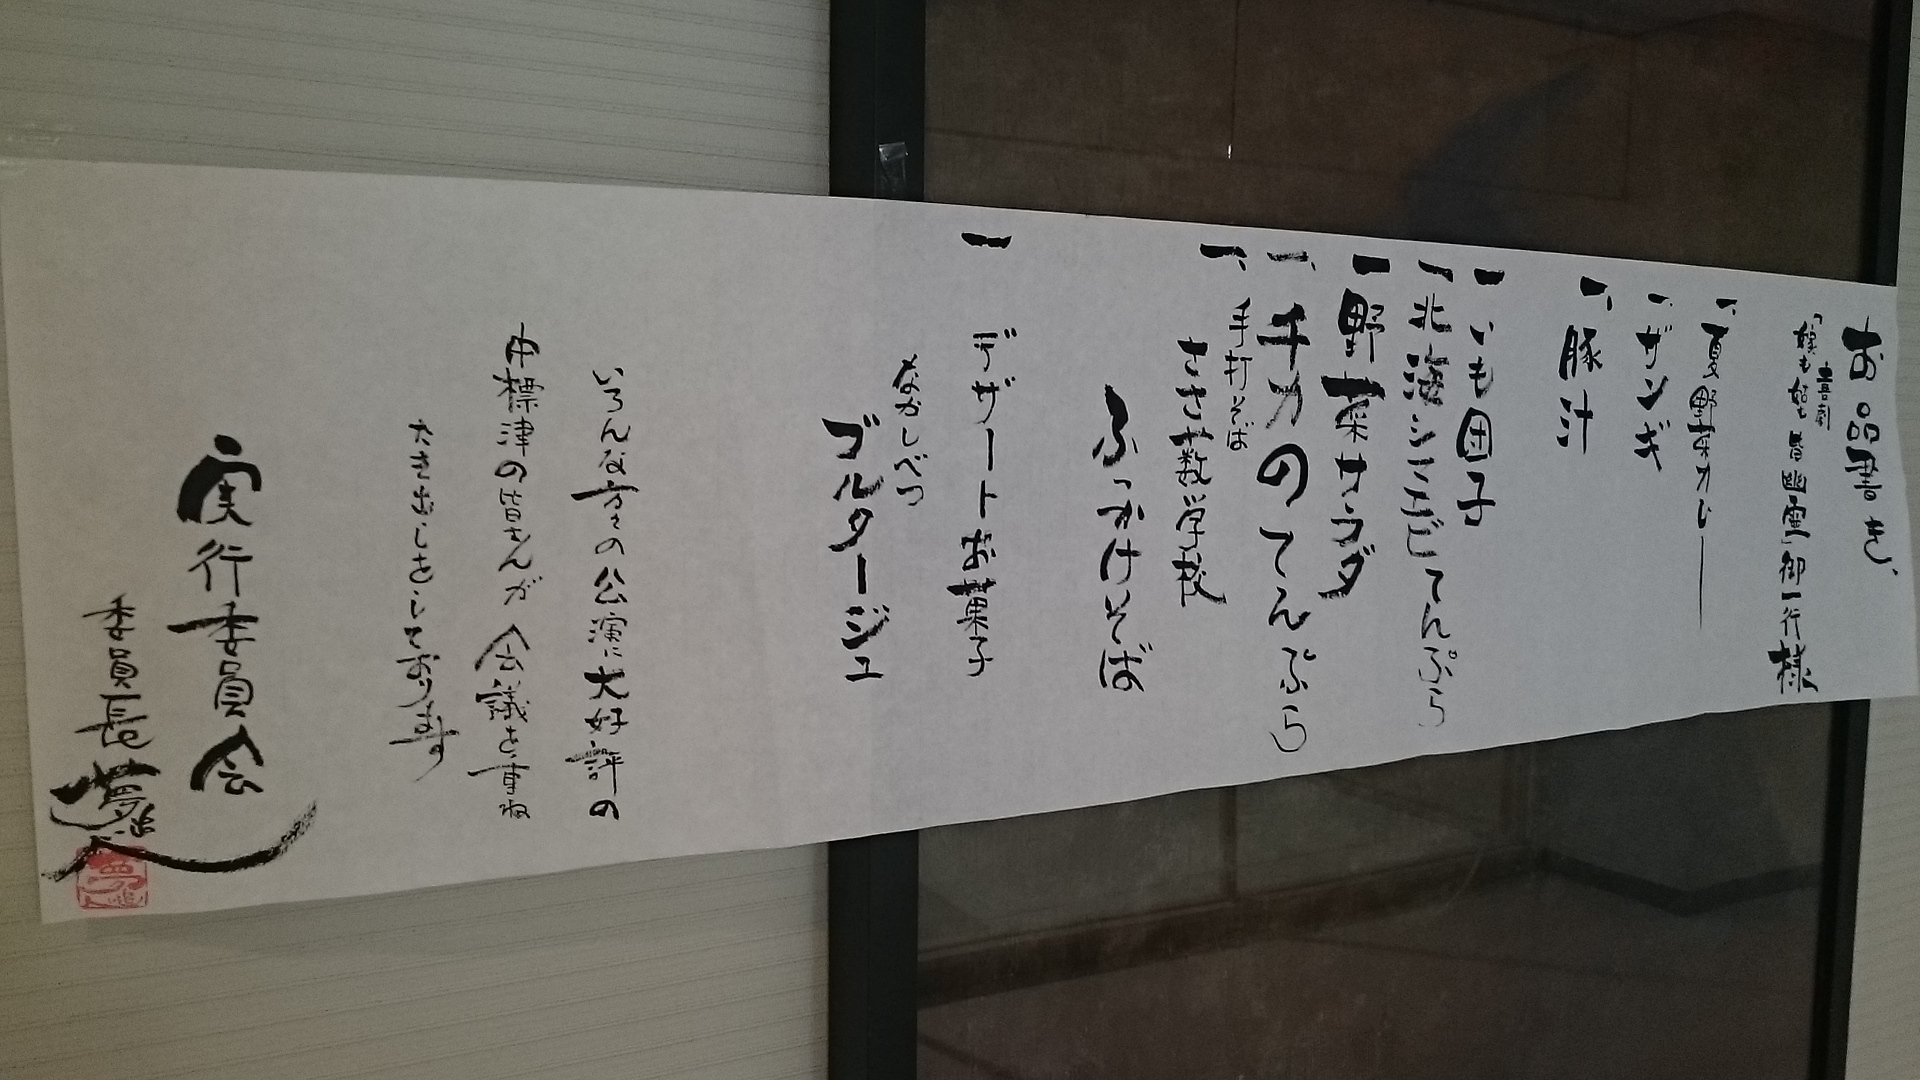 お品書き
喜劇
「嫁も姑も皆幽霊」御一行様
一、夏野菜カレー
一、ザンギ
一、豚汁
一、いも団子
一、北海シマエビてんぷら
一、野菜サラダ
一、チカのてんぷら
一、手打そば
ささ藪学校
ぶっかけそば
一 デザートお菓子
なかしべつ
ゴルタージュ
いろんな方々の公演に大好評の
中標津の皆さんが会議を重ね
たき出しをしております
実行委員会
委員長